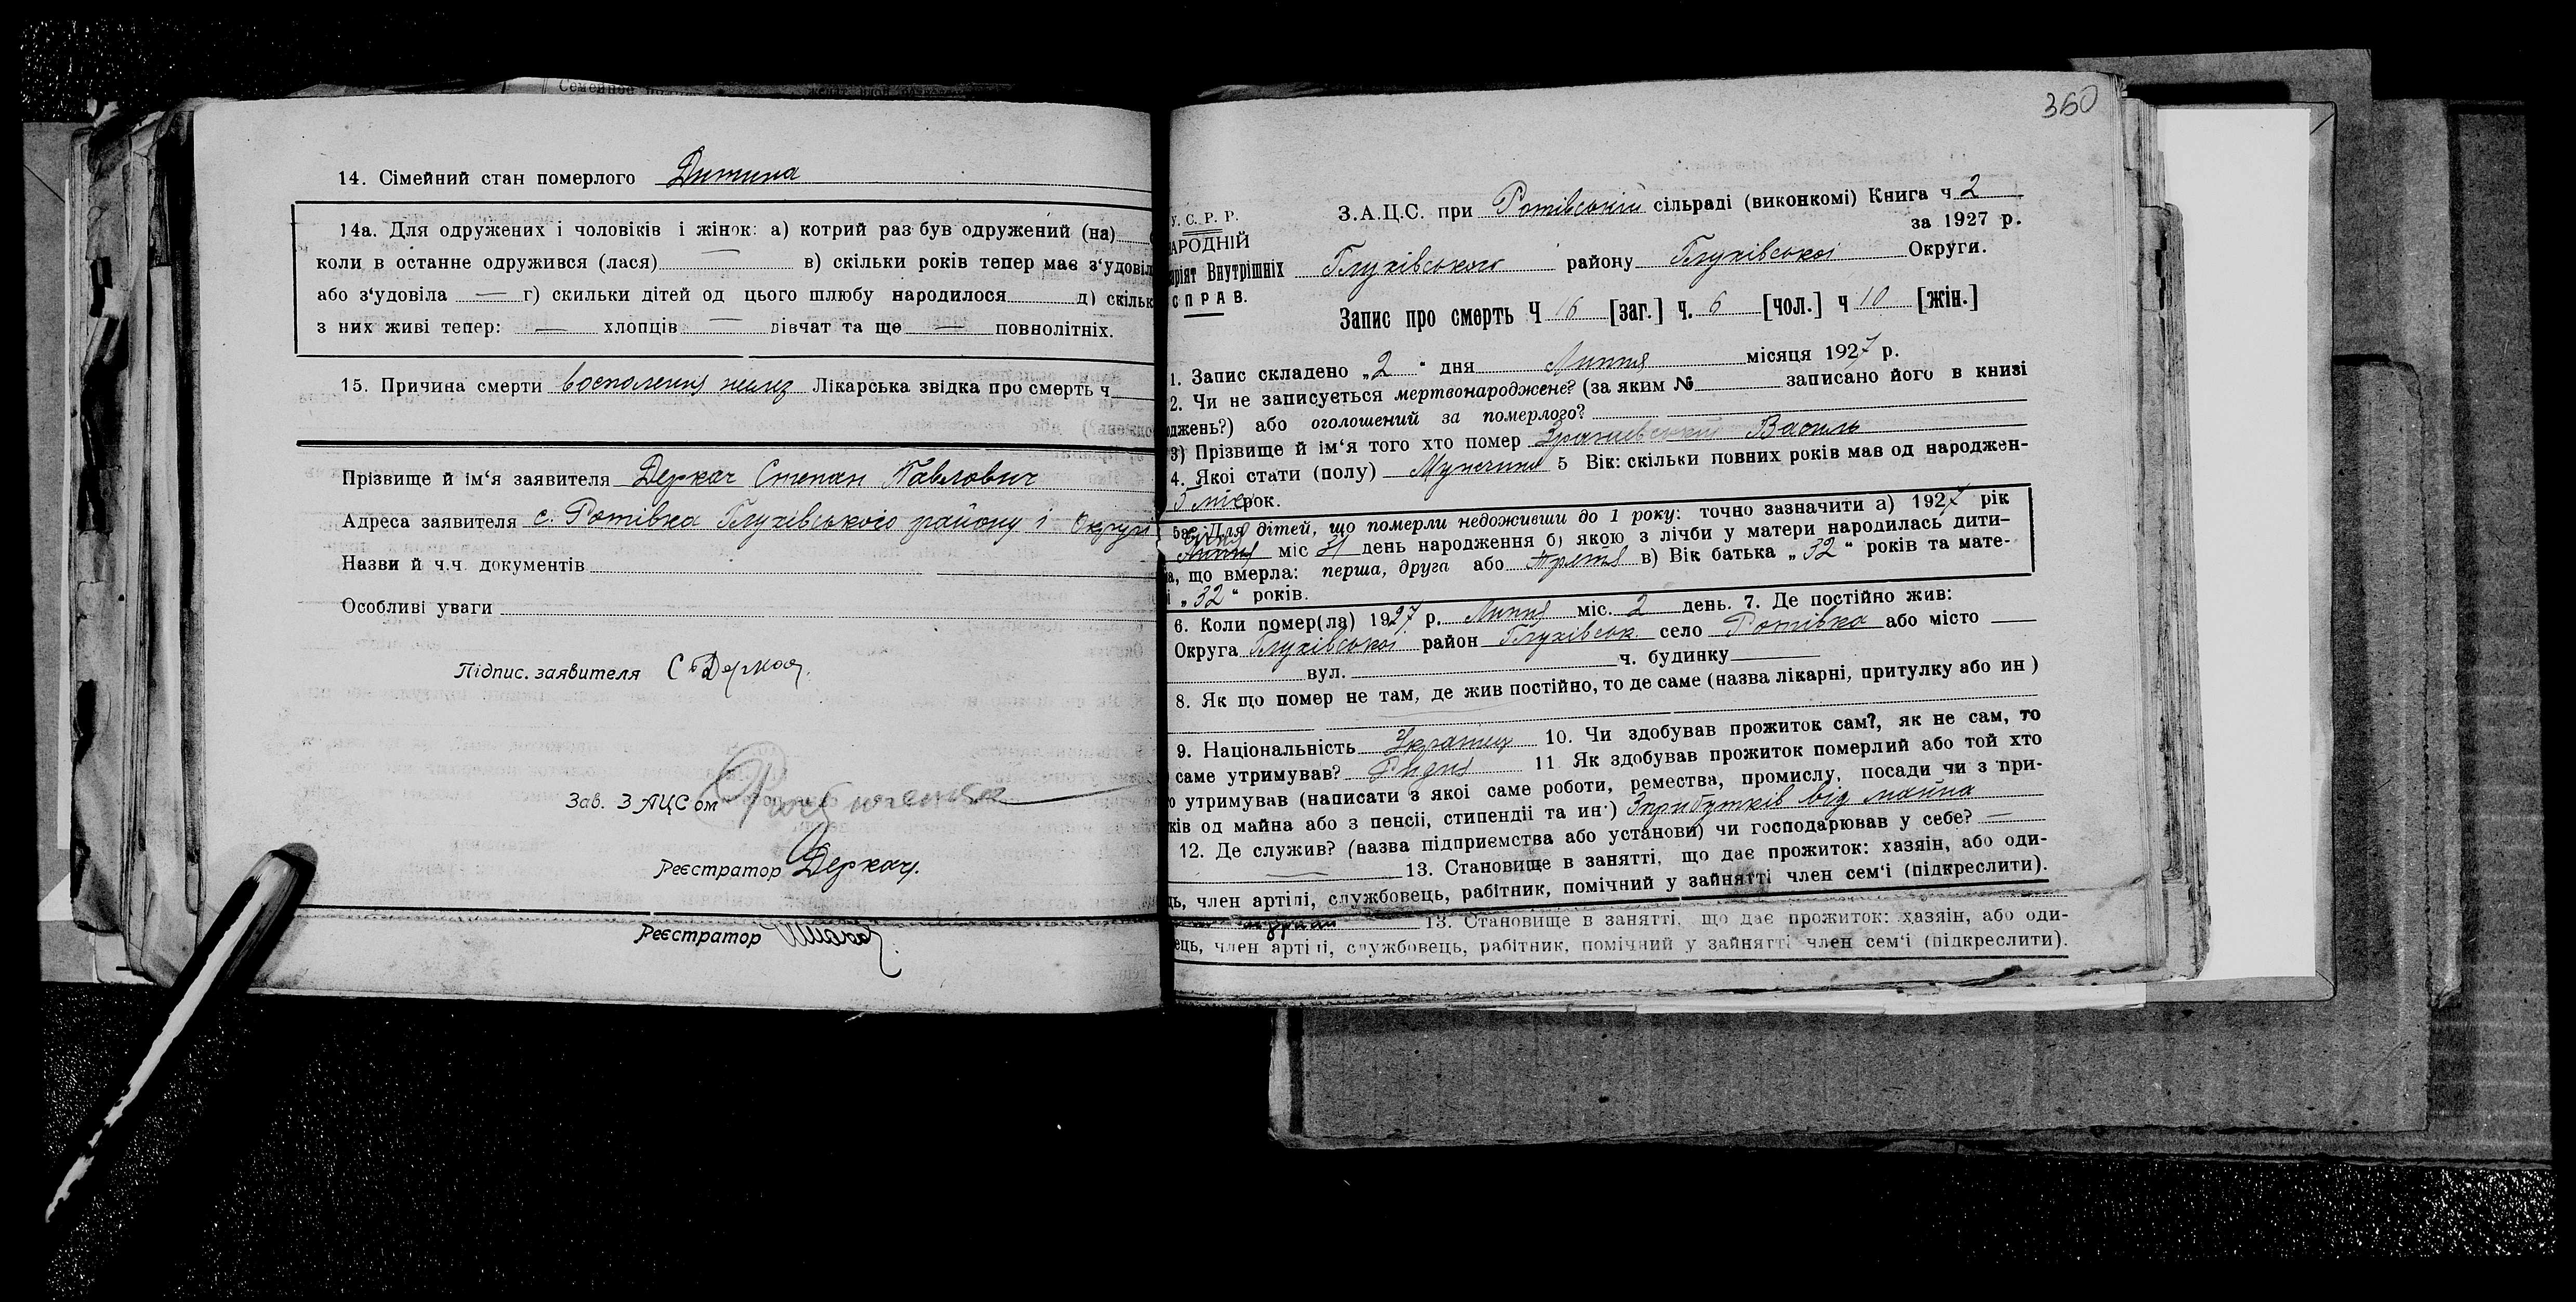 14. Сімейний стан померлого Дитина
14а. Для одружених і чоловіків і жінок: а) котрий раз був одружений (на)
коли в останне одружився (лася) — в) скільки років тепер має з'удовіл
або з'удовіла — г) скильки дітей од цього шлюбу народилося д) скільк
з них живі тепер: — хлопців — дівчат та ще — повнолітніх.
15. Причина смерти восполения Лікарська звідка про смерть ч
Прізвище й ім'я заявителя Деркач Степан Павлович
Адреса заявителя с. Ротівка Глухівського району і Округи
Назви й ч.ч. документів
Особливі уваги
Підпис. заявителя С Деркач
Зав. З АЦС ом
Реєстратор Деркач.
Реєстратор
360
У. С. Р. Р.
АРОДНІЙ
аріят Внутрішніх
СПРАВ.
З.А.Ц.С. при Ротівській сільраді (виконкомі) Книга ч 2
за 1927 р.
Глухівського району Глухівської Округи.
Запис про смерть Ч 16 [заг.] ч. 6 [чол.] ч 10 [жін.]
1. Запис складено „2" дня Липня місяця 1927 р.
2. Чи не записується мертвонароджене? (за яким № записано його в книзі
оджень?) або оголошений за померлого?
3) Прізвище й ім'я того хто помер Василь
4. Якої стати (полу) Мужчина 5 Вік: скільки повних років мав од народжен-
5 міс рок.
5а. Для дітей, що померли недоживши до 1 року: точно зазначити а) 1927 рік
міс день народження б) якою з лічби у матери народилась дити-
а, що вмерла: перша, друга або третя в) Вік батька „32" років та мате-
і „32" років.
6. Коли помер(ла) 1927 р. Липня міс. 2 день. 7. Де постійно жив:
Округа Глухівської район Глухівськ. село Ротівка або місто —
вул. ч. будинку
8. Як що помер не там, де жив постійно, то де саме (назва лікарні, притулку або ин )
9. Національність Українец 10. Чи здобував прожиток сам?, як не сам, то
саме утримував? Ридня 11 Як здобував прожиток померлий або той хто
о утримував (написати з якої саме роботи, ремества, промислу, посади чи з при-
ків од майна або з пенсії, стипендії та ин·) Зприбутків від майна
12. Де служив? (назва підприємства або установи) чи господарював у себе? —
— 13. Становище в занятті, що дає прожиток: хазяін, або оди-
ць, член артілі, службовець, рабітник, помічний у зайнятті член сем'ї (підкреслити).
13. Становище в занятті, що дає прожиток: хазяін, або оди-
ець, член артілі, службовець, рабітник, помічний у зайнятті член сем'ї (підкреслити).